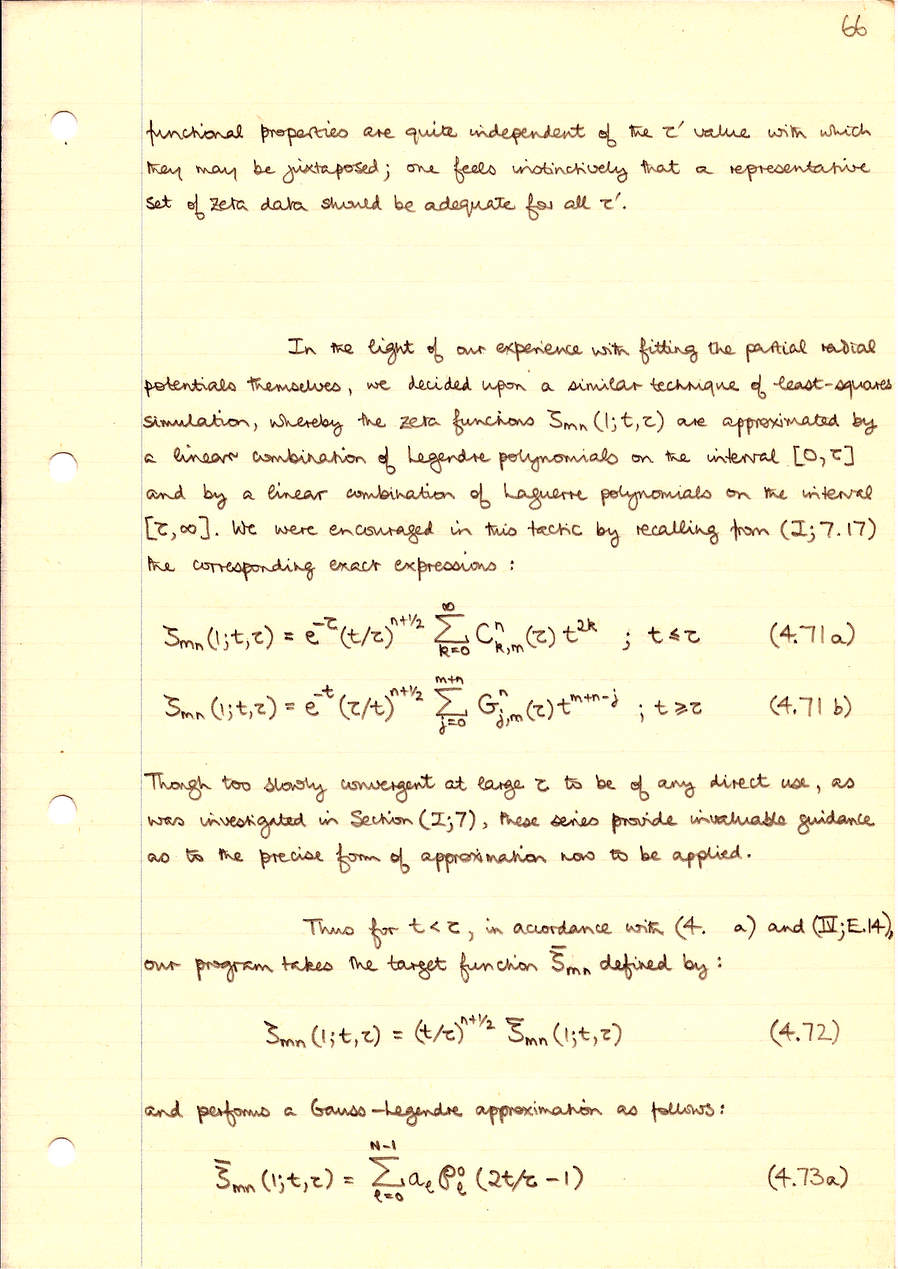 66
functional properties are quite independent of the τ' value with which
they may be juxtaposed; one feels instinctively that a representative
set of zeta data should be adequate for all τ'.
In the light of our experience with fitting the partial radial
potentials themselves, we decided upon a similar technique of least-squares
simulation, whereby the zeta functions ζmn (1;t,τ) are approximated by
a linear combination of Legendre polynomials on the interval [0,τ]
and by a linear combination of Laguerre polynomials on the interval
[τ,∞]. We were encouraged in this tactic by recalling from (I;7.17)
the corresponding exact expressions :
ζmn (1;t,τ) = e^-τ (t/τ)^n+1/2 ∑_{k=0}^{∞} C^n_{k,m}(τ) t^2k ; t ≤ τ (4.71a)
ζmn (1;t,τ) = e^-t (τ/t)^n+1/2 ∑_{j=0}^{m+n} G^n_{j,m}(τ) t^m+n-j ; t ≥ τ (4.71 b)
Though too slowly convergent at large τ to be of any direct use, as
was investigated in Section (I;7), these series provide invaluable guidance
as to the precise form of approximation now to be applied.
Thus for t < τ, in accordance with (4. a) and (IV;E.14),
our program takes the target function ζ̄mn defined by :
ζmn (1;t,τ) = (t/τ)^n+1/2 ζ̄mn (1;t,τ) (4.72)
and performs a Gauss-Legendre approximation as follows:
ζ̄mn (1;t,τ) = ∑_{ℓ=0}^{N-1} a_ℓ P^0_ℓ (2t/τ - 1) (4.73a)